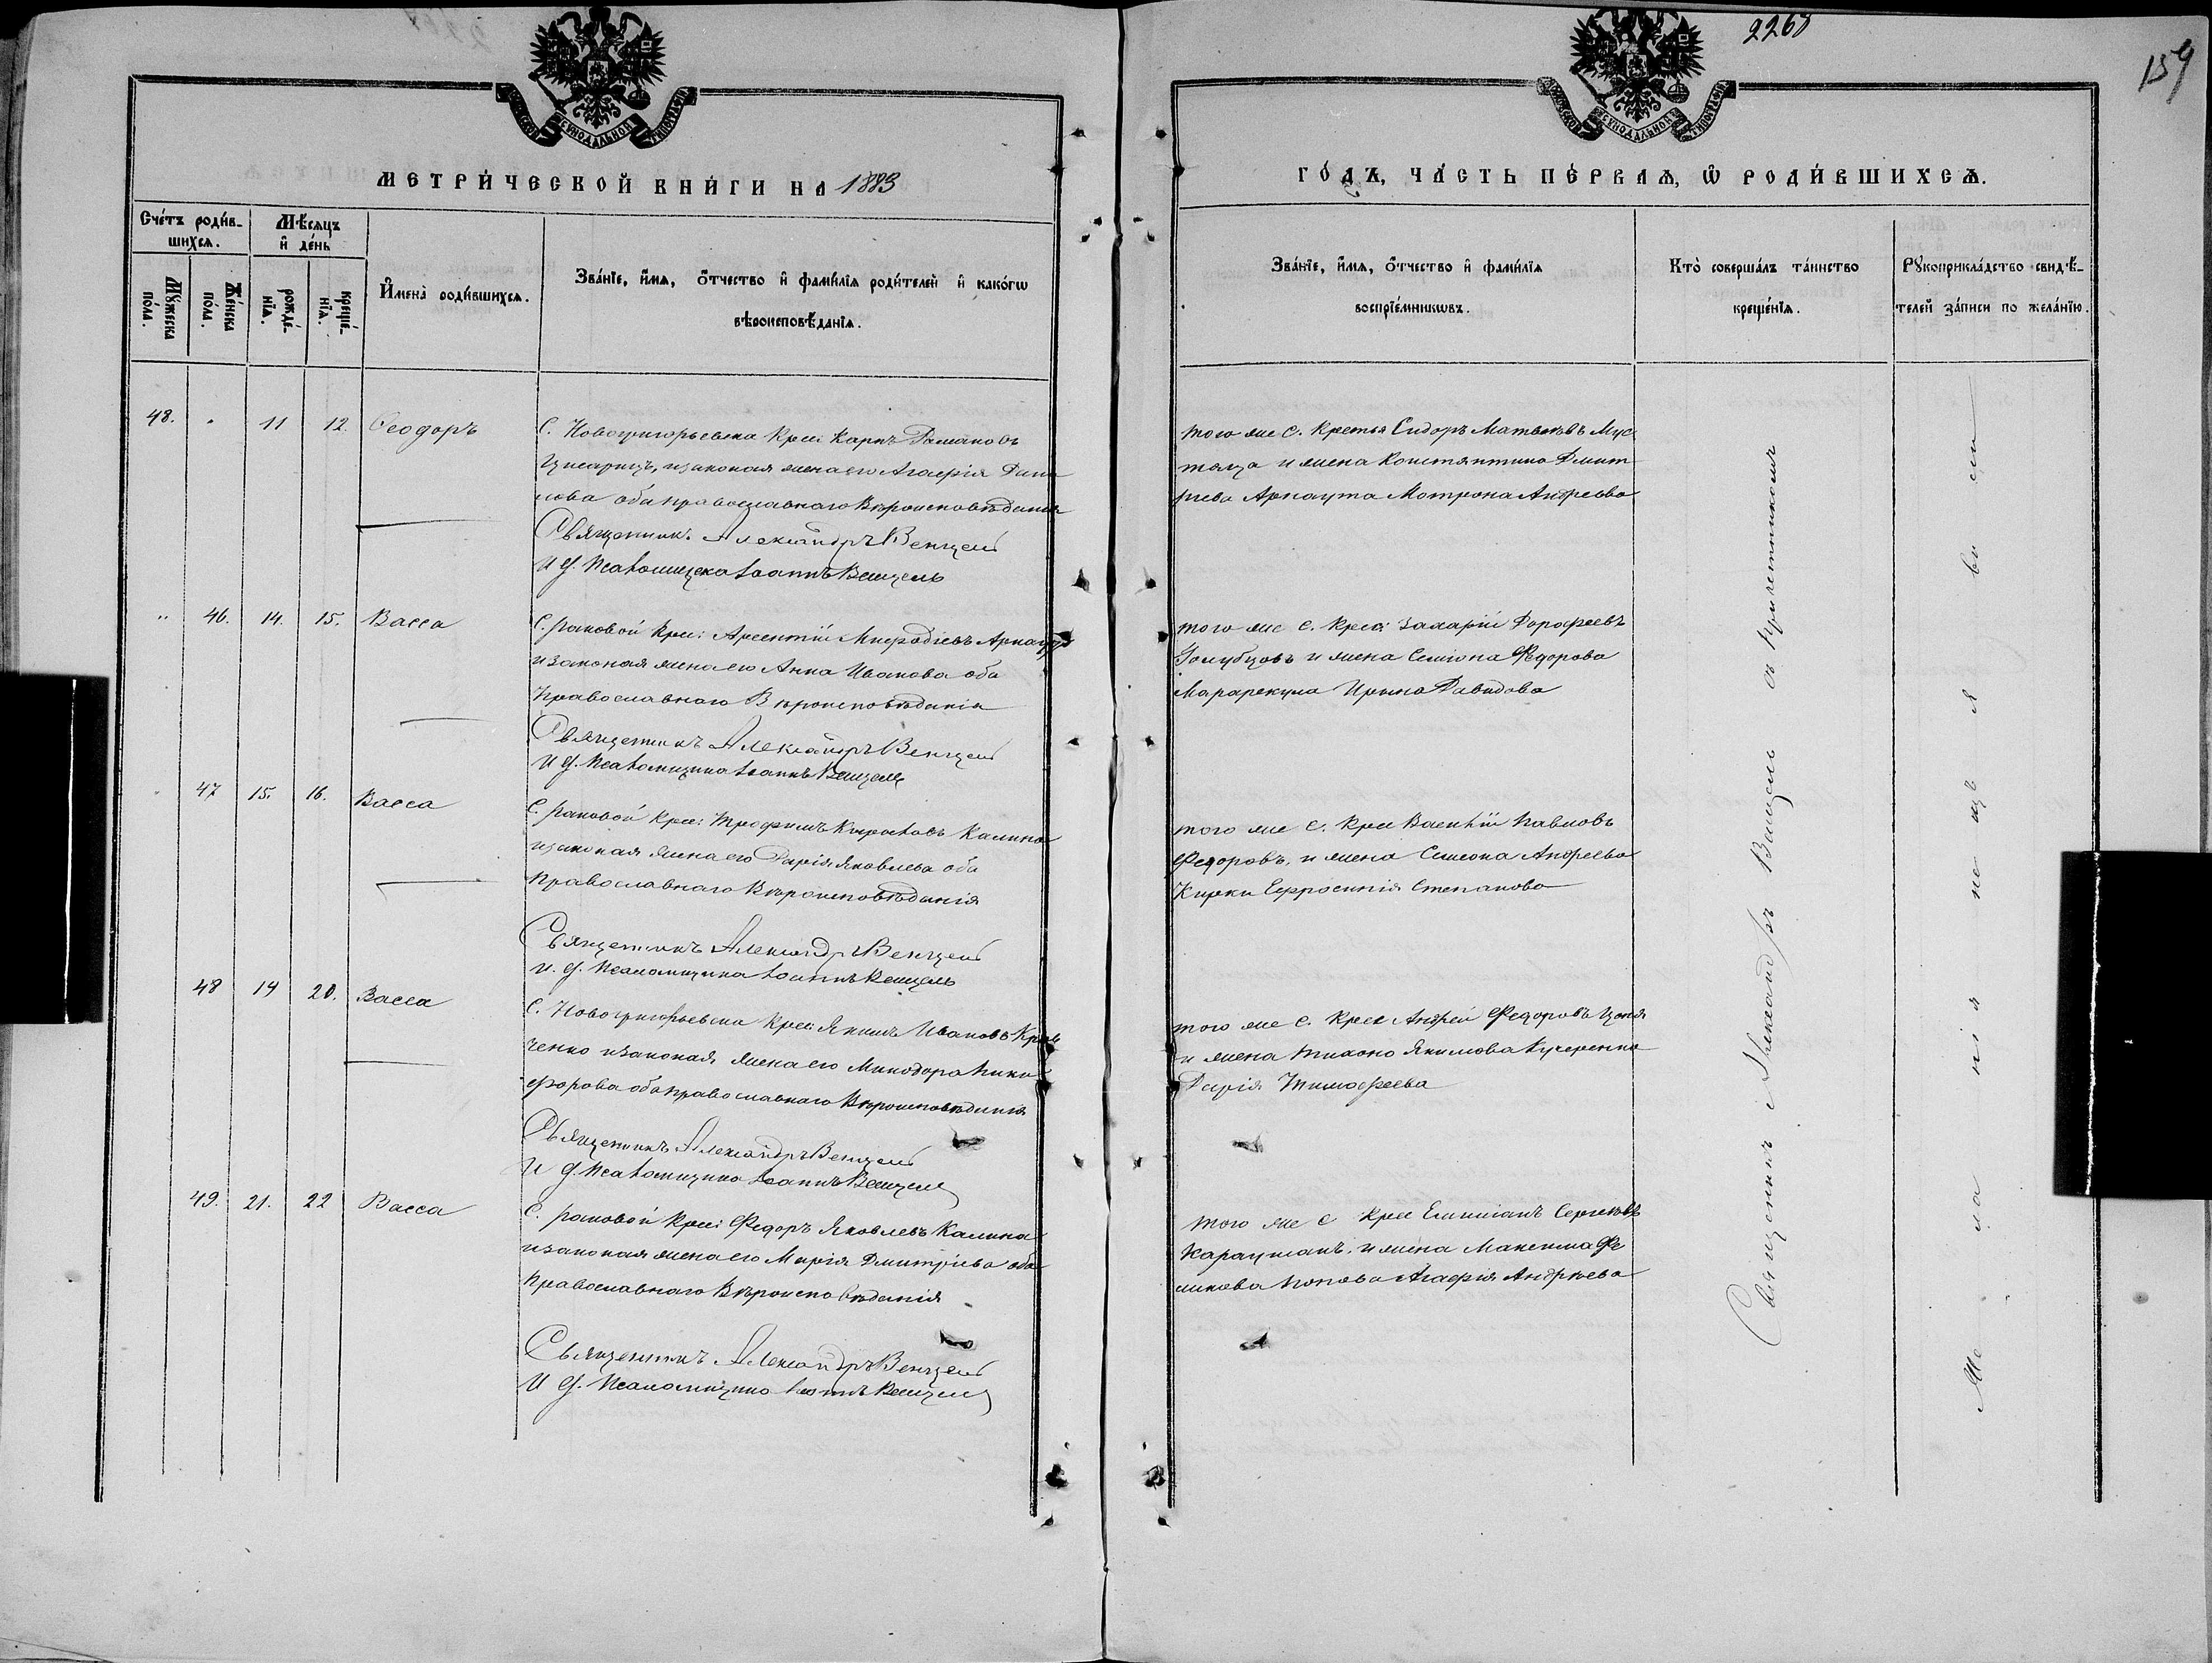 2268
159
МЕТРИ́ЧЕСКОЙ КНИ́ГИ НА 1883
ГО́ДЪ, ЧА́СТЬ ПЕ́РВАЯ, Ѡ РОДИ́ВШИХСЯ.
Сче́тъ роди́в-
шихся.
Мѣ́сяцъ
и де́нь
Му́жеска
по́ла.
Же́нска
по́ла.
рожде́-
нїя.
креще́-
нїя.
Имена̀ роди́вшихся.
Зва́нїе, и́мя, о́тчество и фами́лїя роди́телей и како́гѡ
вѣроисповѣ́данїя.
Зва́нїе, и́мя, о́тчество и фами́лїя
воспрїе́мникѡвъ.
Кто̀ соверша́лъ та́инство
креще́нїя.
Рꙋкоприкла́дство свидѣ́-
телей за́писи по жела́нїю.
48. 11 12. Ѳеодоръ
С. Новогригорьевка Крес: Карпъ Романовъ
изаконая жена его Агафія Дани
лова оба православнаго Вѣроисповѣданія
Священникъ Александръ Венцель
И. д. Псаломщика Іоаннъ Венцель
того же с. Кретья Сидоръ Матвѣевъ Мус
тяца и жена Константина Дмит
риева Арнаута Мотрона Андреева
" 46. 14. 15. Васса
С. раковой Крес: Арсентій Мефодіевъ Арнаутъ
изаконая жена его Анна Иванова оба
Православнаго Вѣроисповѣданія
Священникъ Александръ Венцель
И д. Псаломщика Іоаннъ Венцель
того же с. Крес: Захарій Дорофеевъ
Голубцовъ и жена Семиона Федорова
Ирина Давидова
47 15. 16. Васса
С. раковой Крес: Трофимъ Калина
изаконая жена его Дарія Яковлева оба
Православнаго Вѣроисповѣданія
Священникъ Александръ Венцель
И. д. Псаломщика Іоаннъ Венцель
того же с. Крес Василій Павловъ
Федоровъ, и жена Семиона Андреева
Кирки Ефросинія Степанова
48 14 20. Васса
С. Новогригорьевка Крес: Якимъ Ивановъ Крав
ченко изаконая жена его Минодора Ники
форова оба православнаго Вѣроисповѣданія
Священникъ Александръ Венцель
И д. Псаломщика Іоаннъ Венцель
того же с. Крес Андрей Федоровъ Цопя
и жена Тихона Якимова Кучеренка
Дарія Тимофеева
49. 21. 22 Васса
С. раковой Крес: Федоръ Яковлевъ Калина
изаконая жена его Марія Дмитріева оба
Православнаго Вѣроисповѣданія
Священникъ Александръ Венцель
И д. Псаломщика Іоаннъ Венцель
того же с Крес Емилианъ Сергѣевъ
Карауланъ. и жена Максима Фе
Попова Агафія Андрѣева
Священникъ Александръ Венцель съ Причетникомъ